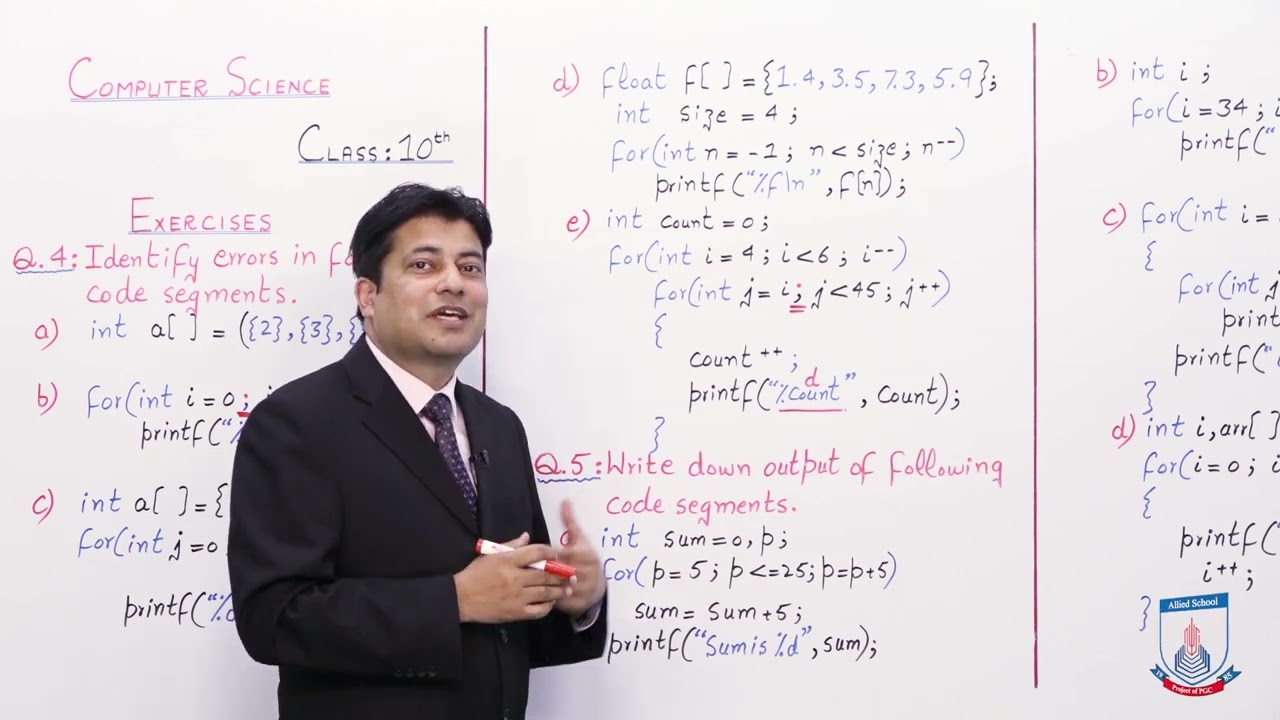 COMPUTER SCIENCE
CLASS: 10th
EXERCISES
Q.4: Identify errors in
code segments.
a) int a[ ] = ({2},{3},{
b) for(int i = 0 ;
printf("
c) int a[ ] = {
for(int j = 0
printf("%
d) float f[ ] = {1.4, 3.5, 7.3, 5.9};
int size = 4 ;
for(int n = -1 ; n < size ; n--)
printf("%f\n", f[n]);
e) int count = 0 ;
for(int i = 4 ; i < 6 ; i--)
for(int j = i ; j < 45 ; j++)
{
count++ ;
d
printf("%count", count);
}
Q.5: Write down output of following
code segments.
int sum = 0, p;
for( p = 5 ; p <= 25; p = p+5)
sum = sum + 5 ;
printf("Sum is %d", sum);
b) int i ;
for(i = 34 ; i
printf("
c) for(int i =
{
for(int j
print
printf("
}
d) int i, arr[ ]
for(i = 0 ; i
{
printf("
i++ ;
}
Allied School
19 85
Project of PGC